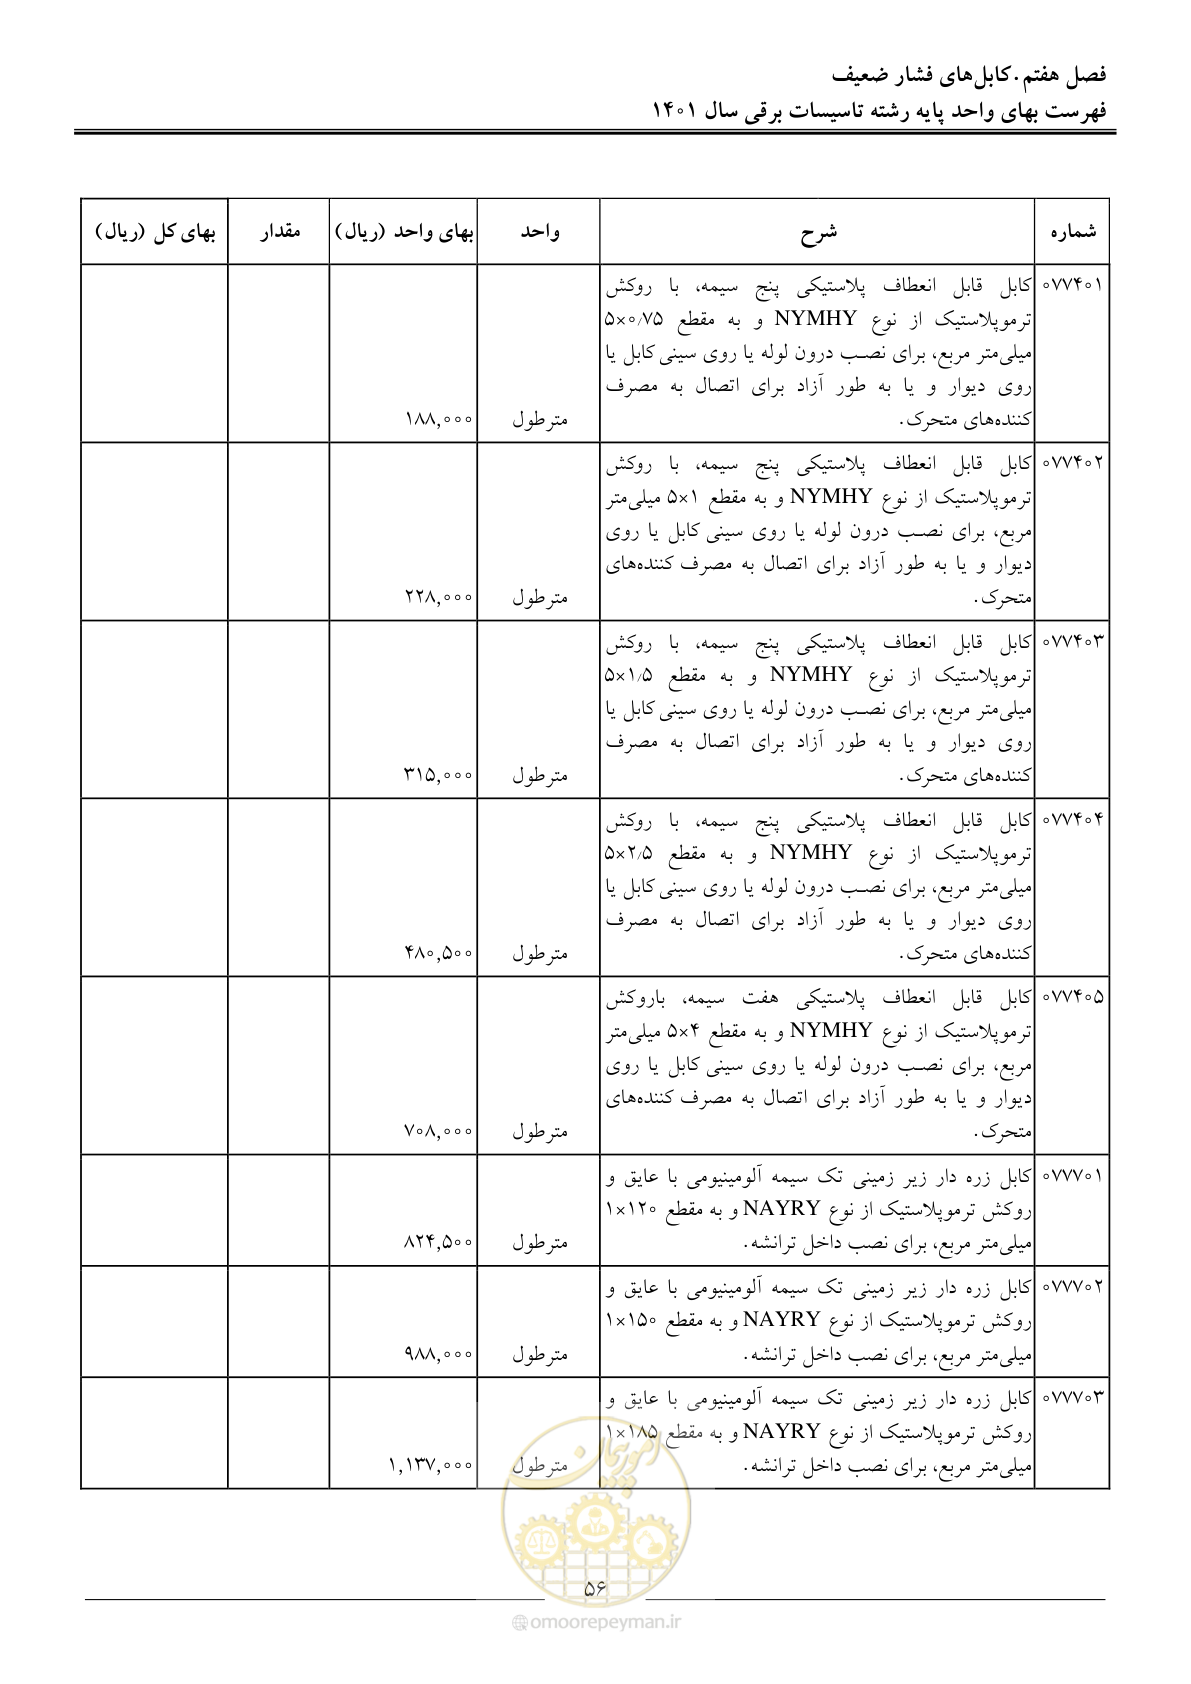 فصل هفتم.کابل‌های فشار ضعیف
فهرست بهای واحد پایه رشته تاسیسات برقی سال ۱۴۰۱
شماره شرح واحد بهای واحد (ریال) مقدار بهای کل (ریال)
۰۷۷۴۰۱ کابل قابل انعطاف پلاستیکی پنج سیمه، با روکش
ترموپلاستیک از نوع NYMHY و به مقطع ۵×۰/۷۵
میلی‌متر مربع، برای نصب درون لوله یا روی سینی کابل یا
روی دیوار و یا به طور آزاد برای اتصال به مصرف
کننده‌های متحرک. مترطول ۱۸۸,۰۰۰
۰۷۷۴۰۲ کابل قابل انعطاف پلاستیکی پنج سیمه، با روکش
ترموپلاستیک از نوع NYMHY و به مقطع ۵×۱ میلی‌متر
مربع، برای نصب درون لوله یا روی سینی کابل یا روی
دیوار و یا به طور آزاد برای اتصال به مصرف کننده‌های
متحرک. مترطول ۲۲۸,۰۰۰
۰۷۷۴۰۳ کابل قابل انعطاف پلاستیکی پنج سیمه، با روکش
ترموپلاستیک از نوع NYMHY و به مقطع ۵×۱/۵
میلی‌متر مربع، برای نصب درون لوله یا روی سینی کابل یا
روی دیوار و یا به طور آزاد برای اتصال به مصرف
کننده‌های متحرک. مترطول ۳۱۵,۰۰۰
۰۷۷۴۰۴ کابل قابل انعطاف پلاستیکی پنج سیمه، با روکش
ترموپلاستیک از نوع NYMHY و به مقطع ۵×۲/۵
میلی‌متر مربع، برای نصب درون لوله یا روی سینی کابل یا
روی دیوار و یا به طور آزاد برای اتصال به مصرف
کننده‌های متحرک. مترطول ۴۸۰,۵۰۰
۰۷۷۴۰۵ کابل قابل انعطاف پلاستیکی هفت سیمه، باروکش
ترموپلاستیک از نوع NYMHY و به مقطع ۵×۴ میلی‌متر
مربع، برای نصب درون لوله یا روی سینی کابل یا روی
دیوار و یا به طور آزاد برای اتصال به مصرف کننده‌های
متحرک. مترطول ۷۰۸,۰۰۰
۰۷۷۷۰۱ کابل زره دار زیر زمینی تک سیمه آلومینیومی با عایق و
روکش ترموپلاستیک از نوع NAYRY و به مقطع ۱×۱۲۰
میلی‌متر مربع، برای نصب داخل ترانشه. مترطول ۸۲۴,۵۰۰
۰۷۷۷۰۲ کابل زره دار زیر زمینی تک سیمه آلومینیومی با عایق و
روکش ترموپلاستیک از نوع NAYRY و به مقطع ۱×۱۵۰
میلی‌متر مربع، برای نصب داخل ترانشه. مترطول ۹۸۸,۰۰۰
۰۷۷۷۰۳ کابل زره دار زیر زمینی تک سیمه آلومینیومی با عایق و
روکش ترموپلاستیک از نوع NAYRY و به مقطع ۱×۱۸۵
میلی‌متر مربع، برای نصب داخل ترانشه. مترطول ۱,۱۳۷,۰۰۰
امور پیمان
۵۶
omoorepeyman.ir